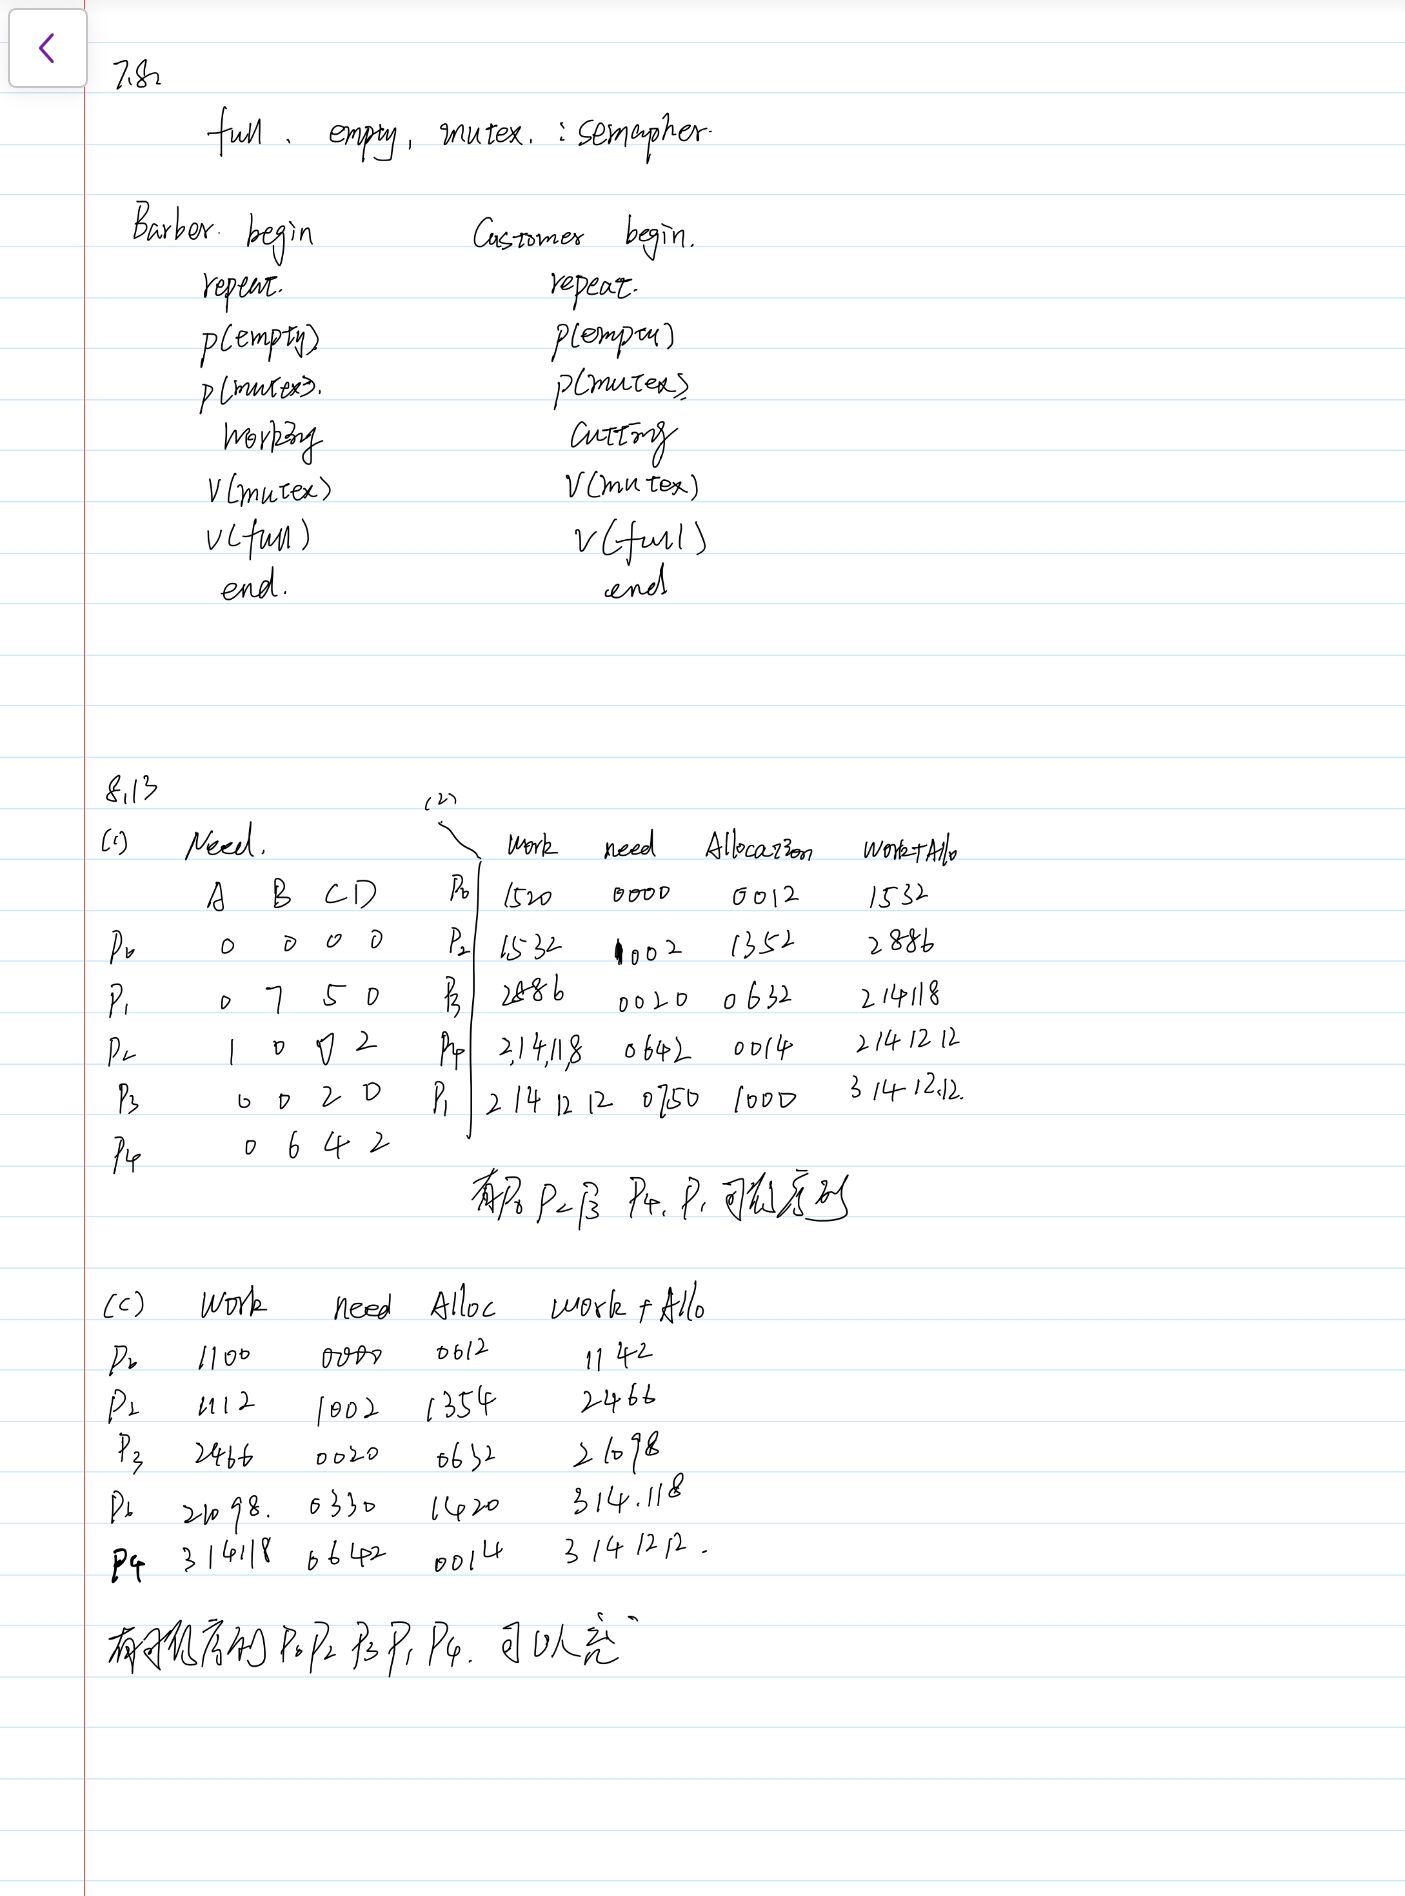 7.8
full. empty, mutex. : semapher.
Barber. begin
repeat.
p(empty)
p(mutex).
working
V(mutex)
V(full)
end.
Customer begin.
repeat.
P(empty)
p(mutex)
Cutting
V(mutex)
V(full)
end
8.13
(1) Need.
A B C D
P0 0 0 0 0
P1 0 7 5 0
P2 1 0 0 2
P3 0 0 2 0
P4 0 6 4 2
(2)
Work need Allocation Work+Allo
P0 1520 0000 0012 1532
P2 1532 1002 1352 2886
P3 2886 0020 0632 214118
P4 2,14,11,8 0642 0014 2141212
P1 2 14 12 12 0750 1000 3 14 12.12.
有P0 P2 P3 P4. P1 序列
(c) Work need Alloc work + Allo
P0 1100 0000 0012 1142
P2 1112 1002 1354 2466
P3 2466 0020 0632 21098
21098. 0330 1420 314.118
P4 314118 0642 0014 3 14 12 12.
有 P0 P2 P3 P1 P4. 可以